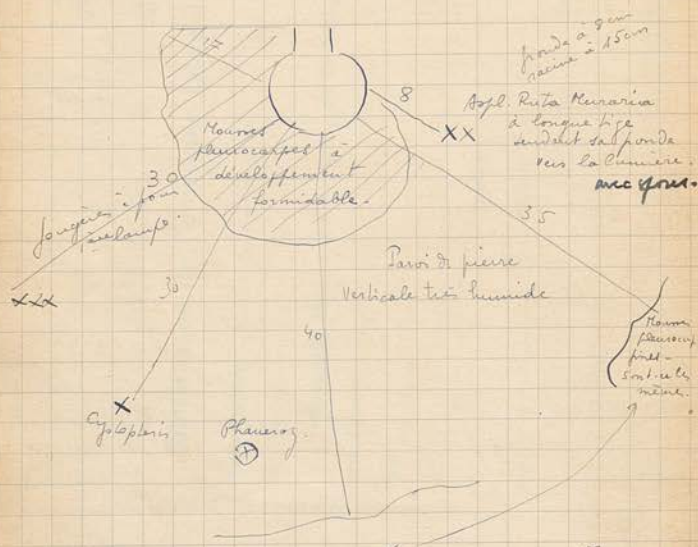 fronde à 9 cm
racine à 15 cm
8
Aspl. Ruta Muraria
à longue tige
tendant sa fronde
vers la lumière.
avec spores.
XX
Mousses
pleurocarpes à
développement
formidable.
30
fougères à
XXX
30
35
Paroi de pierre
verticale très humide
40
Mousses
pleurocarp
sont-ce les
mêmes.
X
Cystopteris
Phanerog.